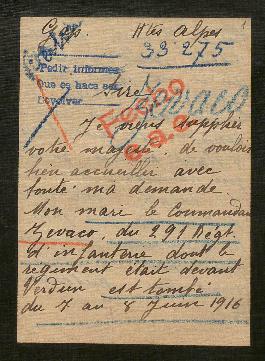 Gap Htes Alpes
33275
Pedir informes
Que se haga ser
Devolver
Sire
Zevaco
Je viens supplier
votre majesté de vouloir
bien accueillir avec
bonté ma demande
Mon mari le Commandant
Zevaco du 291 Regt
d'infanterie dont le
regiment etait devant
Verdun est tombé
du 7 au 8 Juin 1916